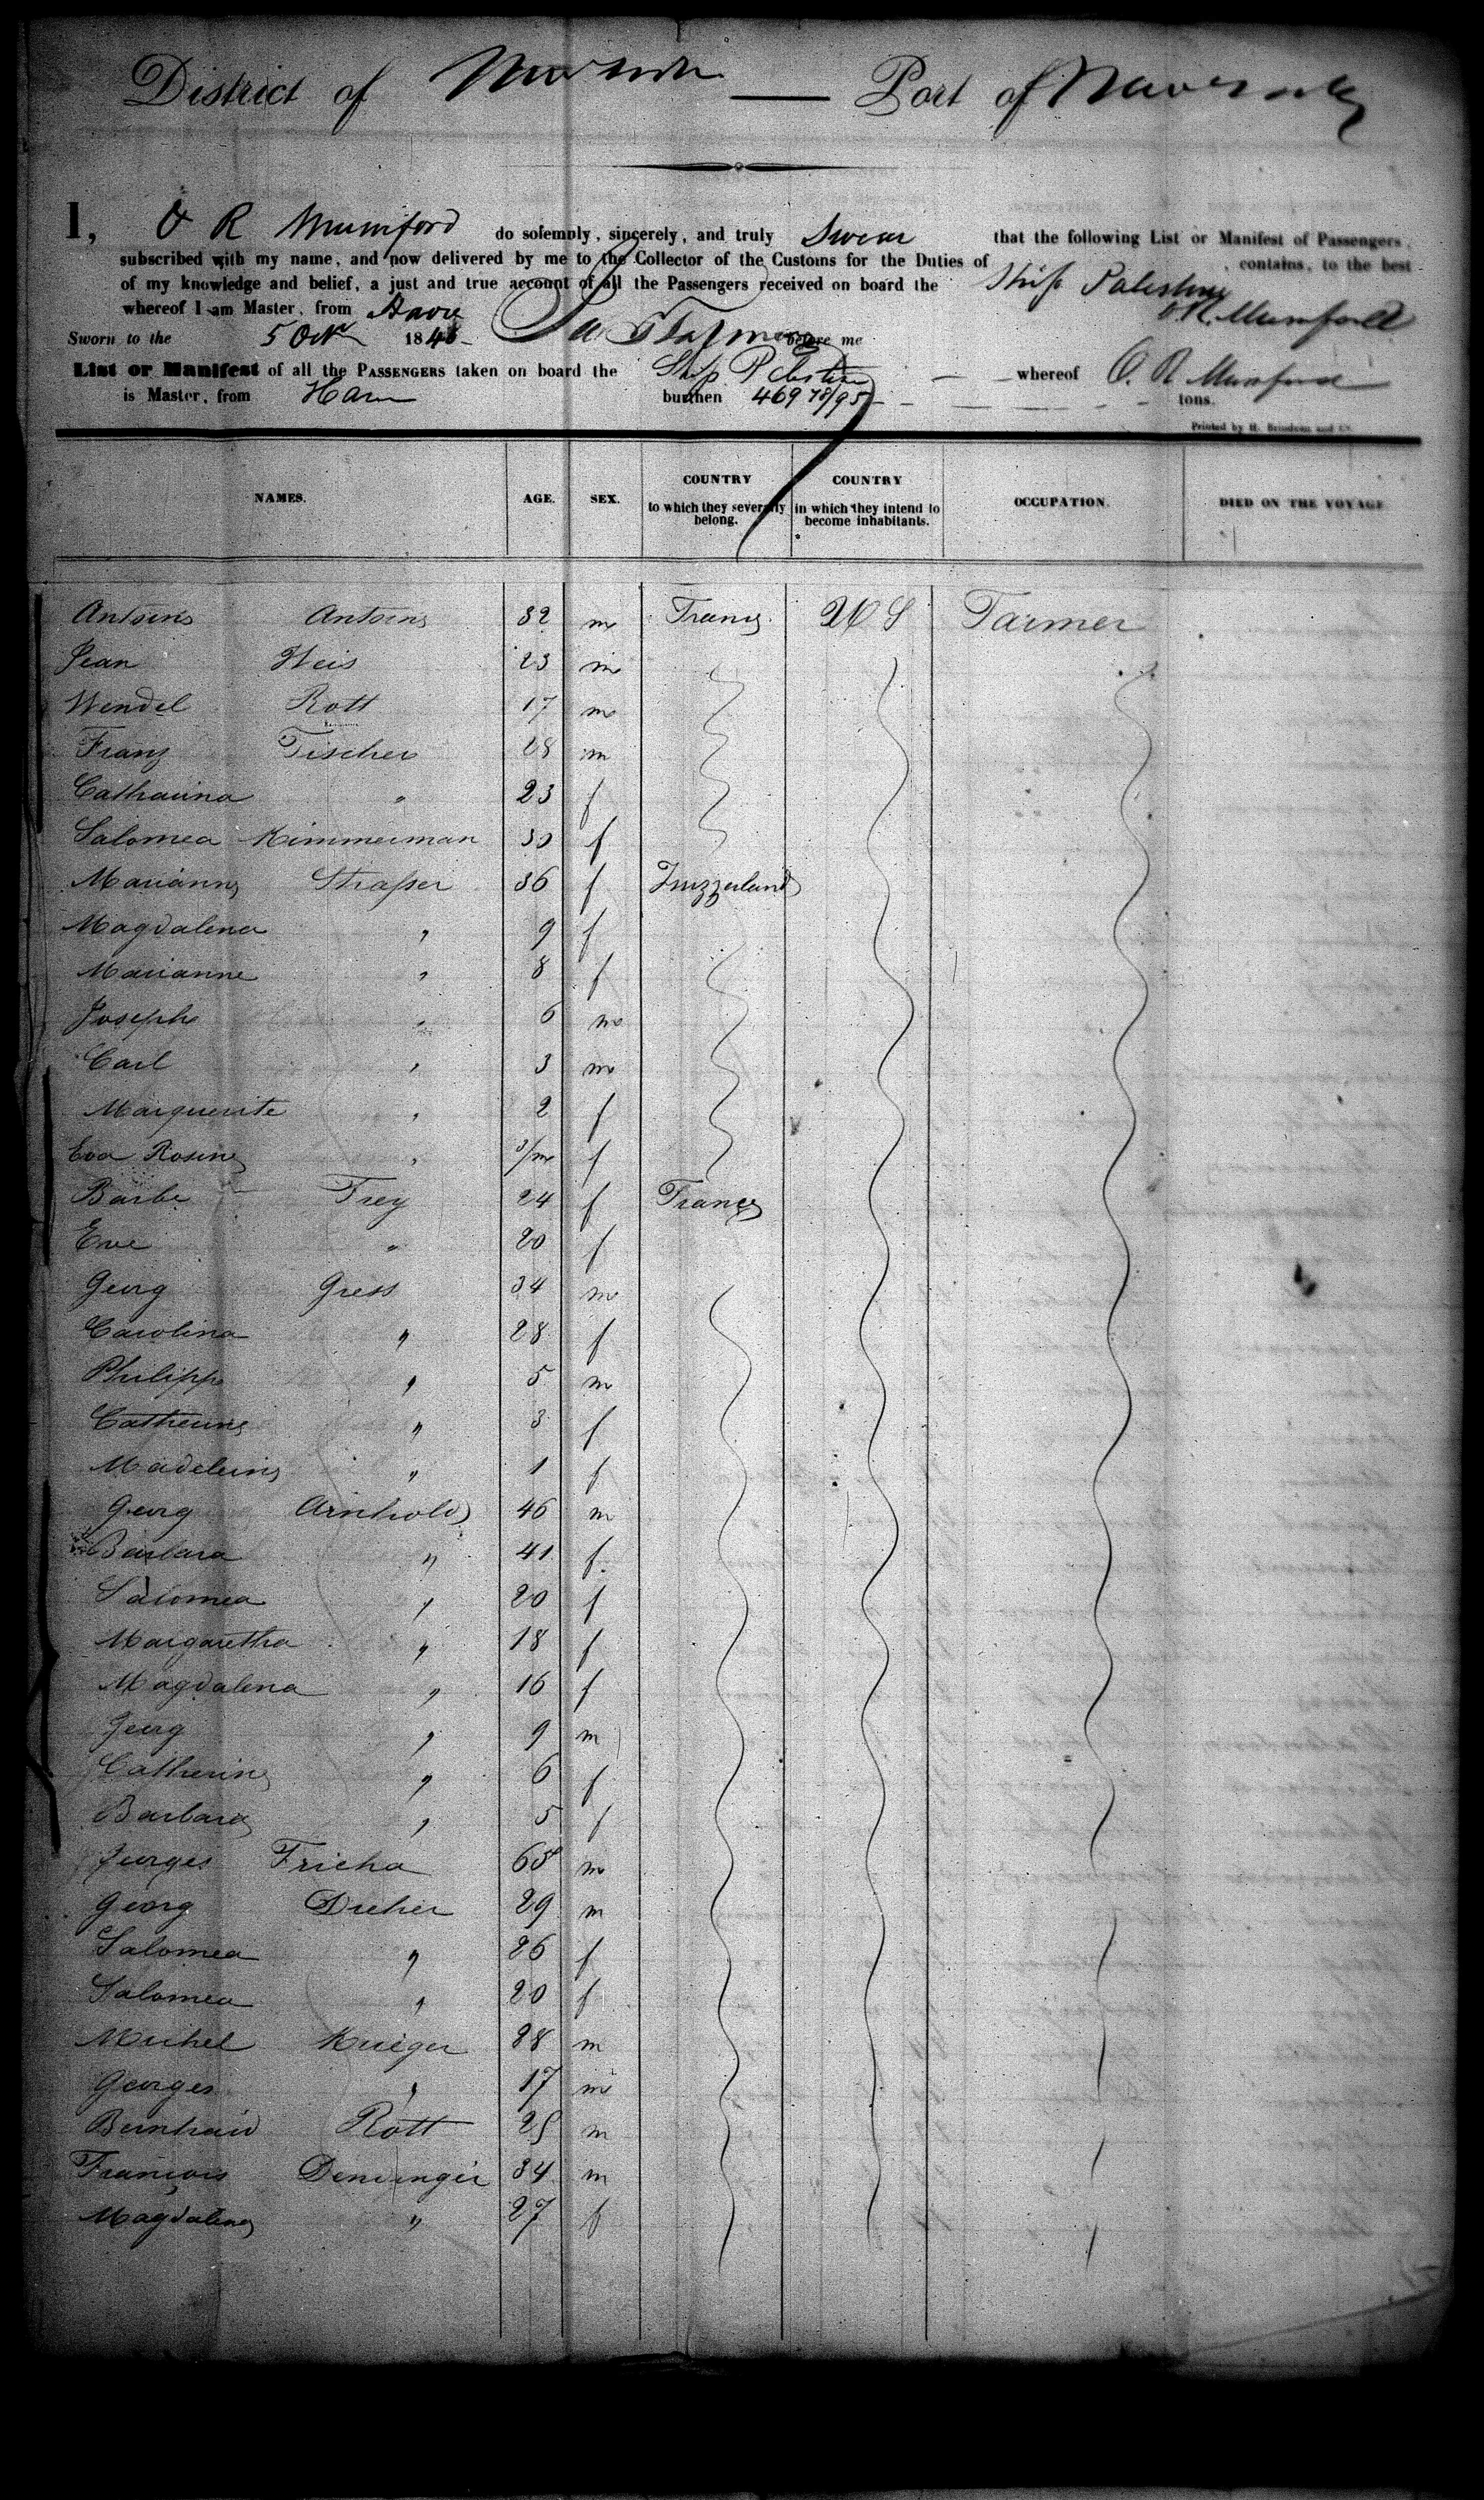 District of New York — Port of New York
I, O R Mumford do solemnly, sincerely, and truly Swear that the following List or Manifest of Passengers,
subscribed with my name, and now delivered by me to the Collector of the Customs for the Duties of , contains, to the best
of my knowledge and belief, a just and true account of all the Passengers received on board the Ship Palestine
whereof I am Master, from Havre O R. Mumford
Sworn to the 5 Oct 1846 before me
List or Manifest of all the PASSENGERS taken on board the Ship Palestine whereof O. R Mumford
is Master, from Havre burthen 469 78/95 tons.
Printed by H.
NAMES. AGE. SEX. COUNTRY to which they severally belong. COUNTRY in which they intend to become inhabitants. OCCUPATION. DIED ON THE VOYAGE
Antoine Antoine 32 m France U S Farmer
Jean Weis 23 m
Wendel Rott 17 m
Franz Fischer 28 m
Catharina " 23 f
Salomea Kimmerman 30 f
Marianne Strasser 36 f Switzerland
Magdalena " 9 f
Marianne " 8 f
Joseph " 6 m
Carl " 3 m
Marguerite " 2 f
Eva Rosine " 3/m f
Barbe Frey 24 f France
Eve " 20 f
Georg Gress 34 m
Carolina " 28 f
Philipp " 5 m
Catherine " 3 f
Madeleine " 1 f
Georg Arnhold 46 m
Barbara " 41 f.
Salomea " 20 f
Margaretha " 18 f
Magdalena " 16 f
Georg " 9 m
Catherine " 6 f
Barbara " 5 f
Georges Fricha 65 m
Georg Dreher 29 m
Salomea " 26 f
Salomea " 20 f
Michel Krieger 28 m
Georges " 17 m
Bernhard Rott 25 m
François Deninger 34 m
Magdalena " 27 f